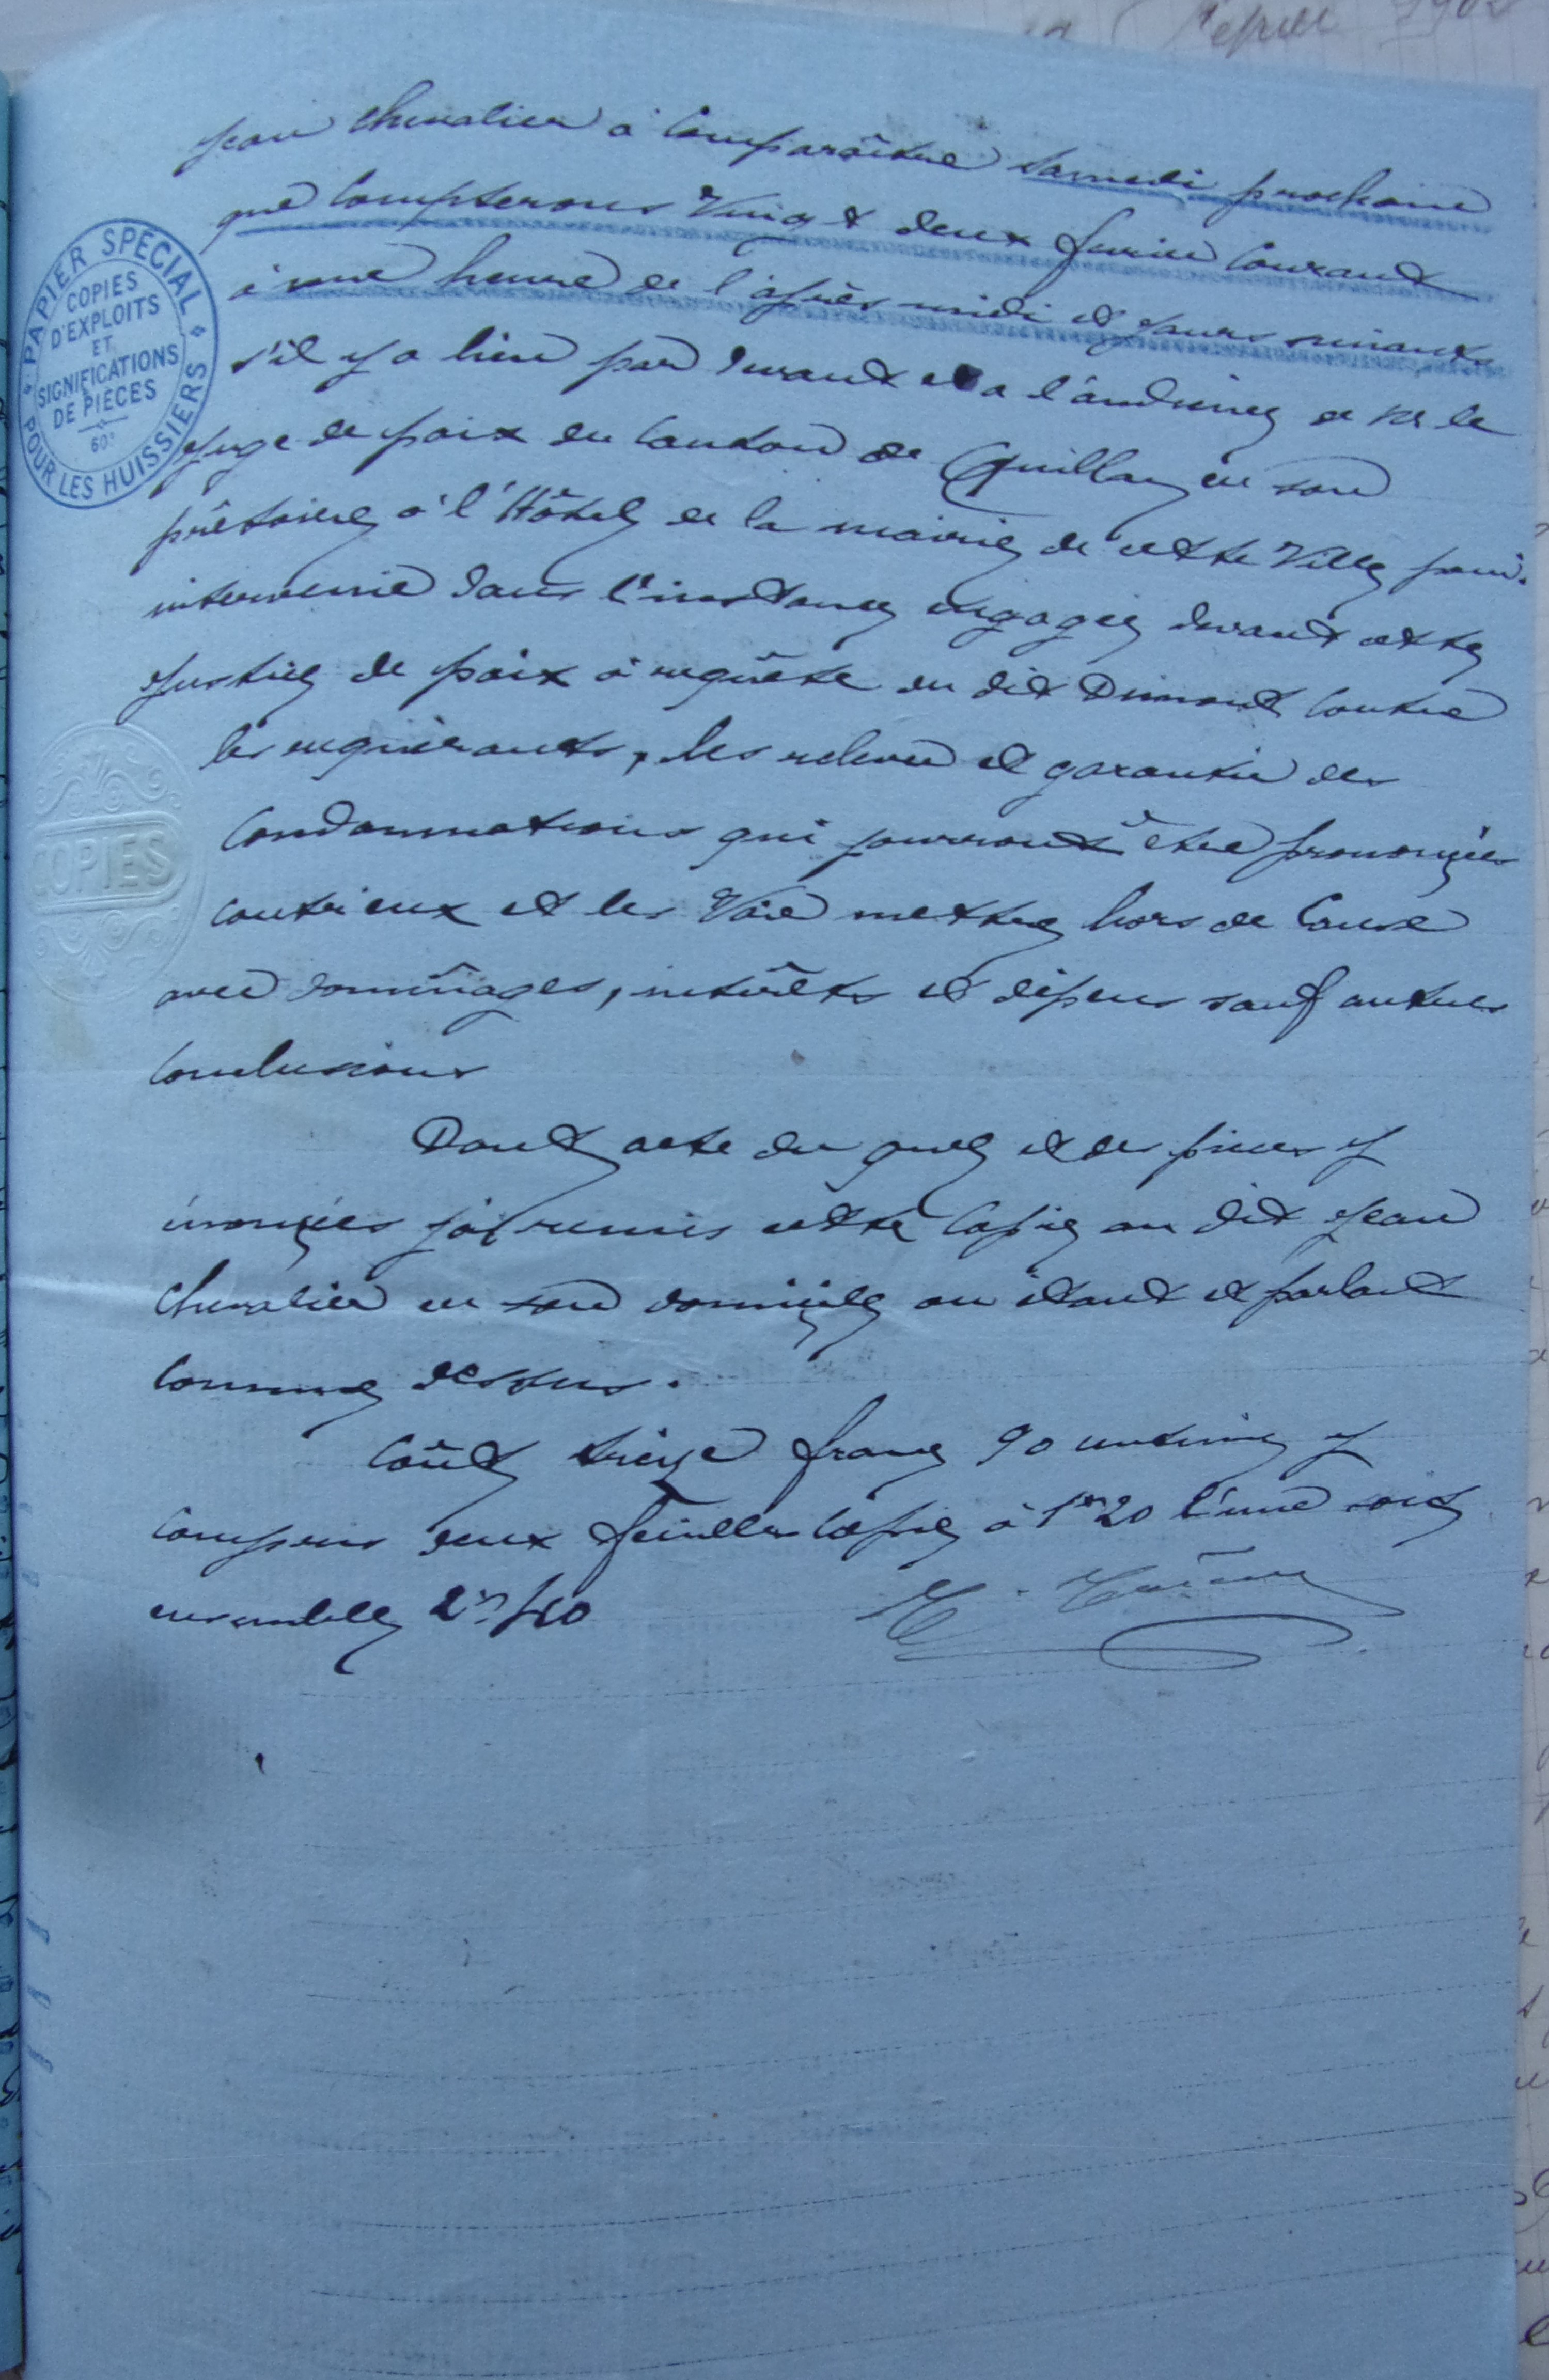 Jean Chevalier à Comparaître samedi prochain
que Compterons Vingt deux février Courant
à une heure de l'après midi et jours suivants
s'il y a lieu par devant et a l'audience de Mr le
Juge de paix du Canton de Quillan en son
prétoire à l'Hôtel de la mairie de cette Ville pour
intervenir dans l'instance engagée devant cette
Justice de paix à requête du dit Dimont Contre
les requérants, les relever et garantir des
Condamnations qui pourront être prononcées
contr'eux et les Voir mettre hors de Cause
avec dommages, intérêts et dépens sauf autres
Conclusions
Dont acte du quel et des pièces y
énoncées j'ai remis cette Copie au dit Jean
Chevalier en son domicile où étant et parlant
Comme dessus.
Coût treize francs 90 centimes y
Compris deux feuilles Copie à 1fr 20 l'une soit
ensemble 2fr 40
PAPIER SPECIAL
POUR LES HUISSIERS
COPIES
D'EXPLOITS
ET
SIGNIFICATIONS
DE PIÈCES
60c
COPIES